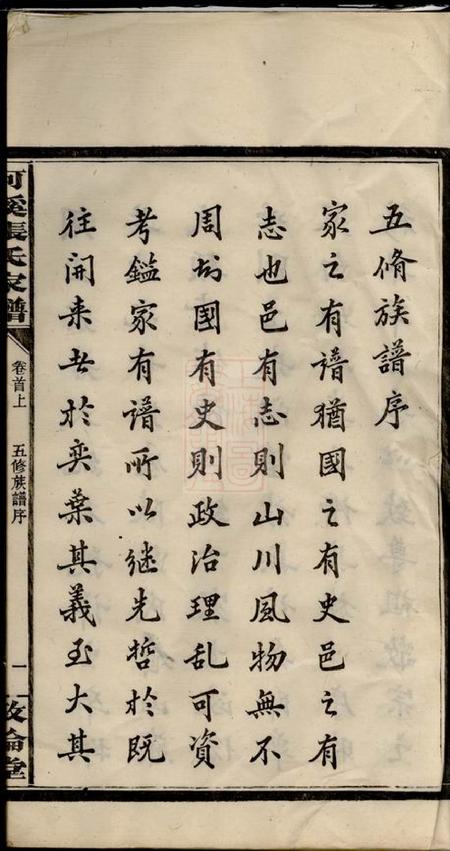 五脩族譜序
家之有譜猶國之有史邑之有
志也邑有志則山川風物無不
周知國有史則政治理乱可資
考鑑家有譜所以継先哲於既
往開来者於奕葉其義至大其
河溪張氏家譜
卷首上
五修族譜序
一
敦倫堂